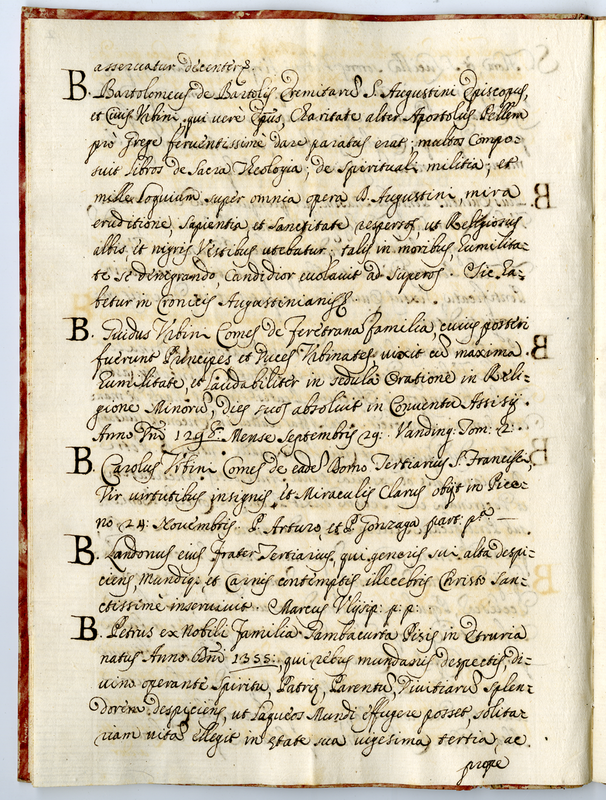 asseruatur decenter.
B. Bartolomeus de Bartolis Eremitarũ S. Augustini Episcopus,
et Ciuis Vrbini, qui vere Epus, Charitate alter Apostolus Pellem
prò grege feruentissime dare paratus erat; multos Compo-
suit libros de Sacra Theologia; de Spirituali militia; et
milleloquium super omnia opera B. Augustini mira
eruditione, Sapientia, et Sanctitate respersos, ut Religiosus
albis, et nigris Vestibus utebatur; talis in moribus, humilita-
te se denegrando, Candidior euolauit ad Superos. Sic ha-
betur in Cronicis Augustinianis.
B. Guidus Vrbini Comes de Feretrana familia, cuius posteri
fuerunt Principes et Duces Vrbinates, uixit cũ maxima
humilitate, et laudabiliter in sedula Oratione in Reli-
gione Minorũ, dies suos absoluit in Conuentu Assisij.
Anno Dni Mense Septembris 29. Vanding: Tom: 2.
B. Carolus Vrbini Comes de eadẽ Domo Tertiarius S. Francisci,
Vir virtutibus insignis, et Miraculis Clarus obijt in Pice-
no 24: Nouembris. P. Arturo, et P. Gonzaga part. pª.
B. Landonus eius frater Tertiarius, qui generis sui alta despi-
ciens, Mundiq; et Carnis contemptis illecebris Christo San-
ctissimè inseruiuit Marcus Vlysip: p: p:
B. Petrus ex Nobili familia Gambacurta Pisis in Etruria
natus Anno Dni 1355:, qui rebus mundanis despectis, di-
uino operante Spiritu, Patrię, Parentũ, Diuitiarũ Splen-
dorem despiciens, ut laqueos Mundi effugere posset, Solita-
riam uitã ellegit in ętate sua uigesima tertia, ac
prope